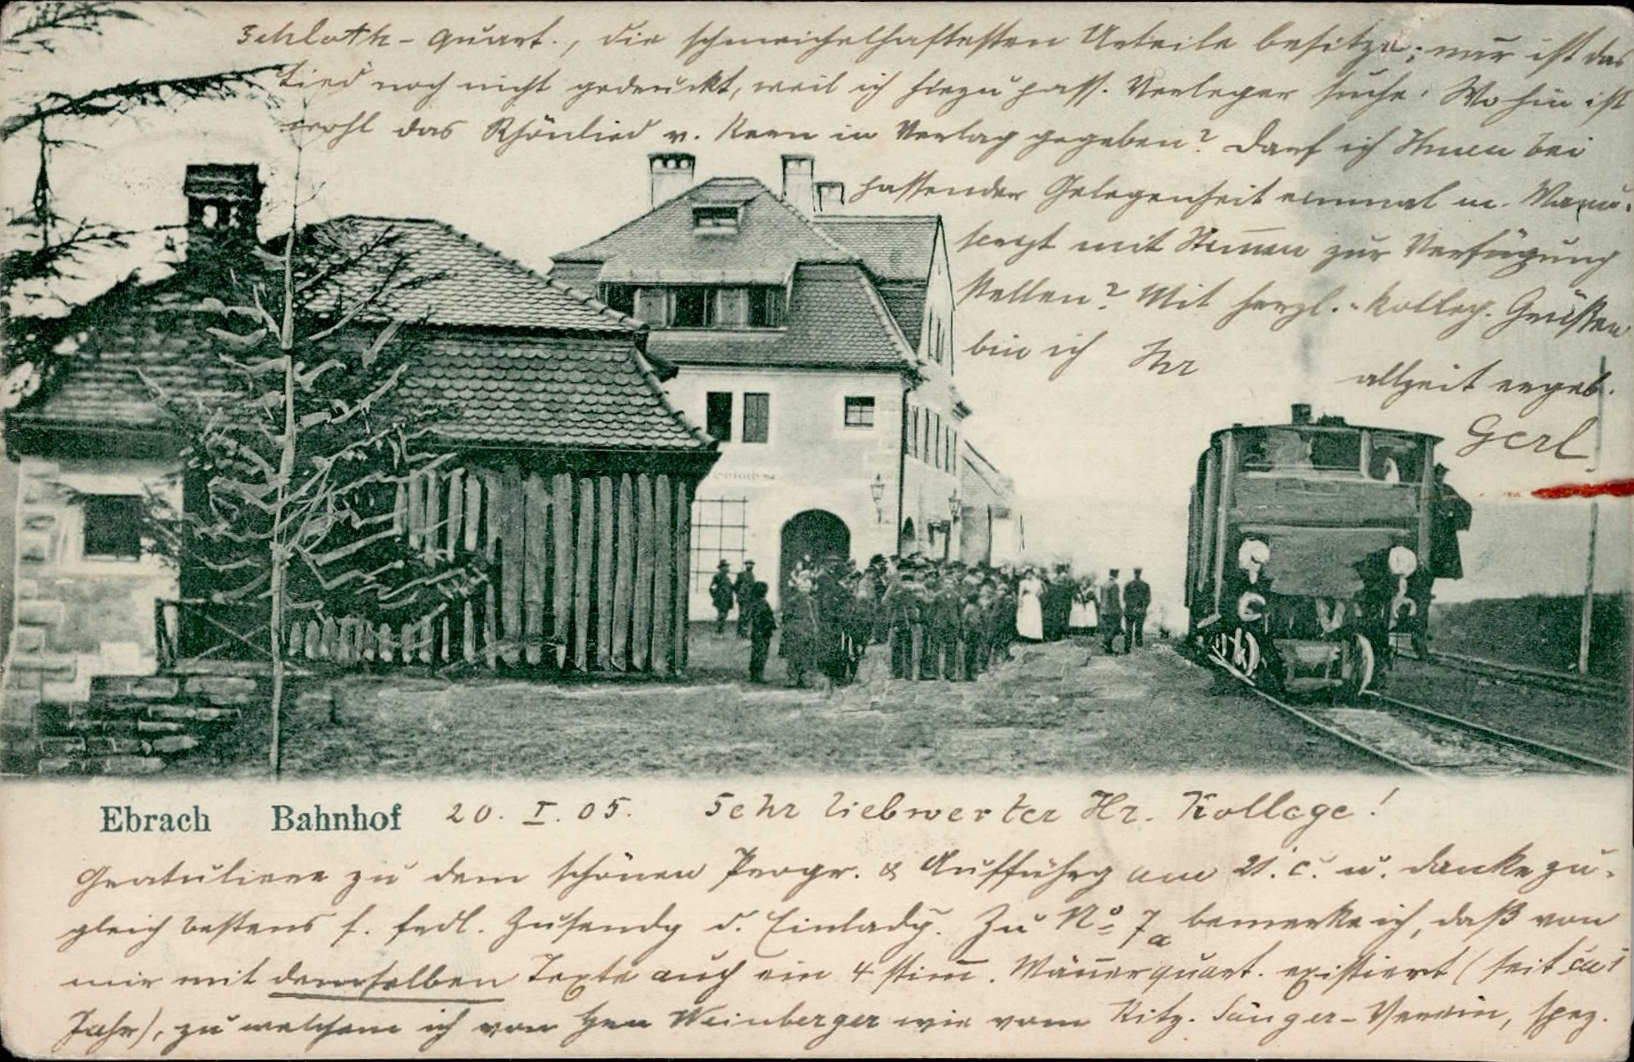 Ebrach Bahnhof 20. I. 05. Sehr liebwerter Hr. Kollege!
Gratuliere zu dem schönen Progr. & Aufführg am 21. c. u. danke zu-
gleich bestens f. frdl. Zusendg d. Einladg. Zu No 7a bemerke ich, daß von
mir mit demselben Texte auch ein 4 stim̄. Män̄erquart. existiert (seit ca 1
Jahr), zu welchem ich von Hrn Weinberger wie vom Kitz. Sänger-Verein, spez.
Schloth-Quart., die schmeichelhaftesten Urteile besitze; nur ist das
Lied noch nicht gedruckt, weil ich hiezu pass. Verleger suche. Wohin ist
wohl das Rhönlied v. Kern in Verlag gegeben? Darf ich Ihnen bei
passender Gelegenheit einmal m. Manu-
script mit Stim̄en zur Verfügung
stellen? Mit herzl.-kolleg. Grüßen
bin ich Ihr
allzeit ergeb.
Gerl.